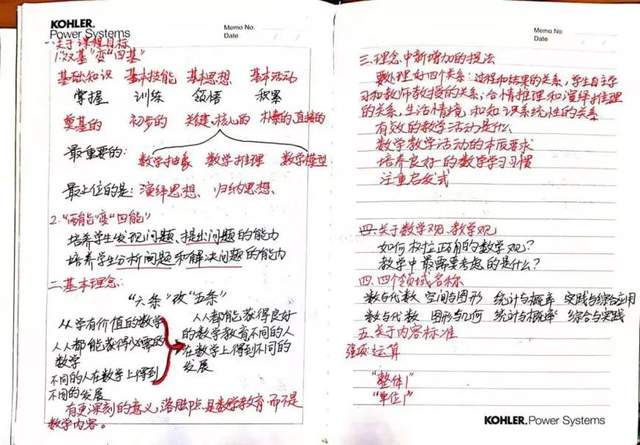 KOHLER.
Power Systems
Memo No.
Date
一.关于课程目标
1."双基"变"四基"
基础知识 基本技能 基本思想 基本活动
掌握 训练 领悟 积累
奠基的 初步的 关键、核心的 朴素的、直接的
最重要的: 数学抽象 数学推理 数学模型
最上位的是: 演绎思想、归纳思想、
2."两能"变"四能"
培养学生发现问题、提出问题的能力
培养学生分析问题和解决问题的能力
二.基本理念:
"六条"改"五条"
人人学有价值的数学
人人都能获得必需的
数学
不同的人在数学上得到
不同的发展
人人都能获得良好
的数学教育不同的人
在数学上得到不同的
发展
有更深刻的意义,落脚点是数学教育而不是
数学内容。
KOHLER.
Power Systems
Memo No.
Date
三.理念中新增加的提法
要处理好四个关系:过程和结果的关系,学生自主学
习和教师教授的关系;合情推理和演绎推理
的关系,生活情境和知识系统性的关系
有效的教学活动是什么
数学教学活动的本质要求
培养良好的数学学习习惯
注重启发式
四.关于数学观、教学观
如何树立正确的数学观?
教学中最需要考虑的是什么?
四.四个领域名称
数与代数 空间与图形 统计与概率 实践与综合应用
数与代数 图形与几何 统计与概率 综合与实践
五.关于内容标准
强 运算
"整体1"
"单位1"
KOHLER.Power Systems